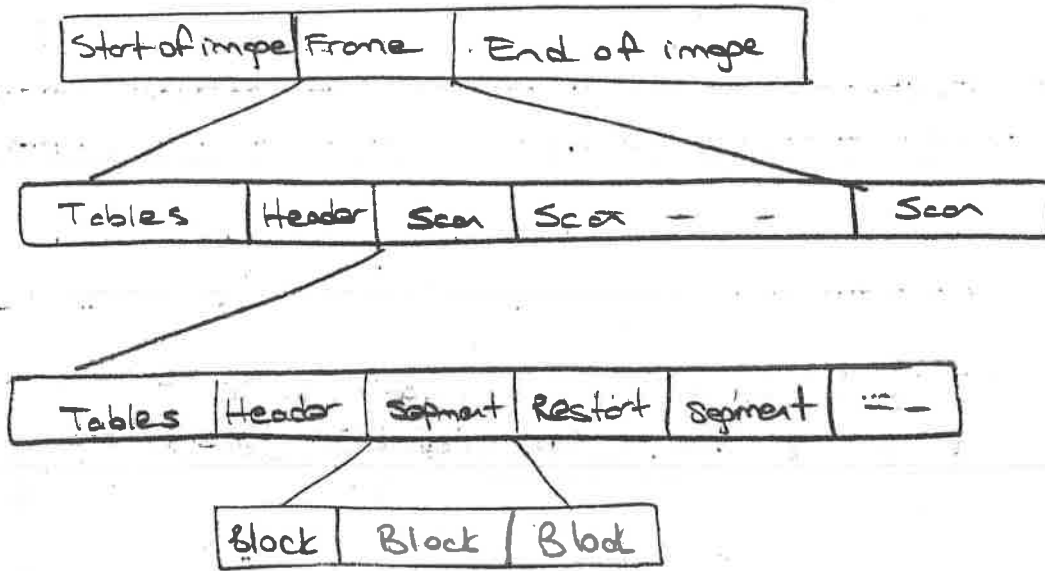 Start of image Frame End of image
Tables Header Scan Scan - - Scan
Tables Header Segment Restart Segment - -
Block Block Block